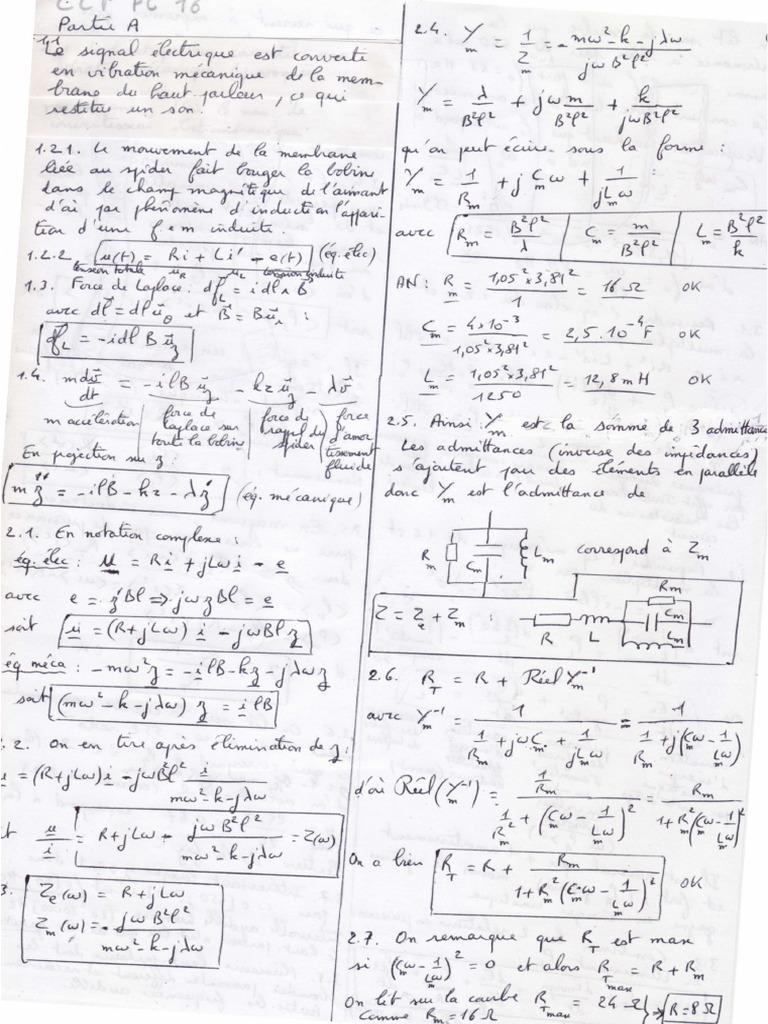 CCP PC 16
Partie A
1.1. Le signal électrique est converti
en vibration mécanique de la mem-
brane du haut-parleur, ce qui
restitue un son.
1.2.1. Le mouvement de la membrane
liée au spider fait bouger la bobine
dans le champ magnétique de l'aimant
d'où par phénomène d'induction l'appari-
tion d'une fem induite.
1.2.2 u(t) = Ri + Li' - e(t) (éq. élec)
tension totale u_R u_L tension induite
1.3. Force de Laplace : df_L = i dl ∧ B
avec dl = dl u_θ et B = B u_r :
df_L = - i dl B u_z
1.4. m dv/dt = - ilB u_z - kz u_z - λv
m accélération | force de Laplace sur toute la bobine | force de rappel du spider | force d'amortissement fluide
En projection sur z :
m z̈ = - ilB - kz - λż (éq. mécanique)
2.1. En notation complexe :
éq. élec : u = Ri + jLωi - e
avec e = z'Bl ⇒ jωzBl = e
soit u = (R+jLω) i - jωBl z
éq méca : -mω²z = -ilB - kz - jλωz
soit (mω² - k - jλω) z = i lB
2. On en tire après élimination de z :
= (R+jLω)i - jωBl² i / (mω² - k - jλω)
u/i = R+jLω - jωB²l² / (mω² - k - jλω) = Z(ω)
3. Z_e(ω) = R + jLω
Z_m(ω) = - jωB²l² / (mω² - k - jλω)
2.4. Y_m = 1/Z_m = - (mω² - k - jλω) / (jωB²l²)
Y_m = λ/(B²l²) + jωm/(B²l²) + k/(jωB²l²)
qu'on peut écrire sous la forme :
Y_m = 1/R_m + jC_mω + 1/(jL_mω) :
avec R_m = B²l²/λ | C_m = m/(B²l²) | L_m = B²l²/k
AN : R_m = 1,05² × 3,81² / 1 = 16 Ω OK
C_m = 4×10⁻³ / (1,05² × 3,81²) = 2,5.10⁻⁴ F OK
L_m = 1,05² × 3,81² / 1250 = 12,8 mH OK
2.5. Ainsi Y_m est la somme de 3 admittances
Les admittances (inverse des impédances)
s'ajoutent pour des éléments en parallèle
donc Y_m est l'admittance de
R_m C_m L_m correspond à Z_m
Z = Z_e + Z_m : R L R_m C_m L_m
2.6. R_T = R + Réel Y_m⁻¹
avec Y_m⁻¹ = 1 / (1/R_m + jωC_m + 1/(jL_mω)) = 1 / (1/R_m + j(C_mω - 1/(L_mω)))
d'où Réel(Y_m⁻¹) = (1/R_m) / (1/R_m² + (C_mω - 1/(L_mω))²) = R_m / (1 + R_m²(C_mω - 1/(L_mω))²)
On a bien R_T = R + R_m / (1 + R_m²(C_mω - 1/(L_mω))²) OK
2.7. On remarque que R_T est max
si (C_mω - 1/(L_mω))² = 0 et alors R_Tmax = R + R_m
On lit sur la courbe R_Tmax = 24 Ω } → R = 8 Ω
Comme R_m = 16 Ω